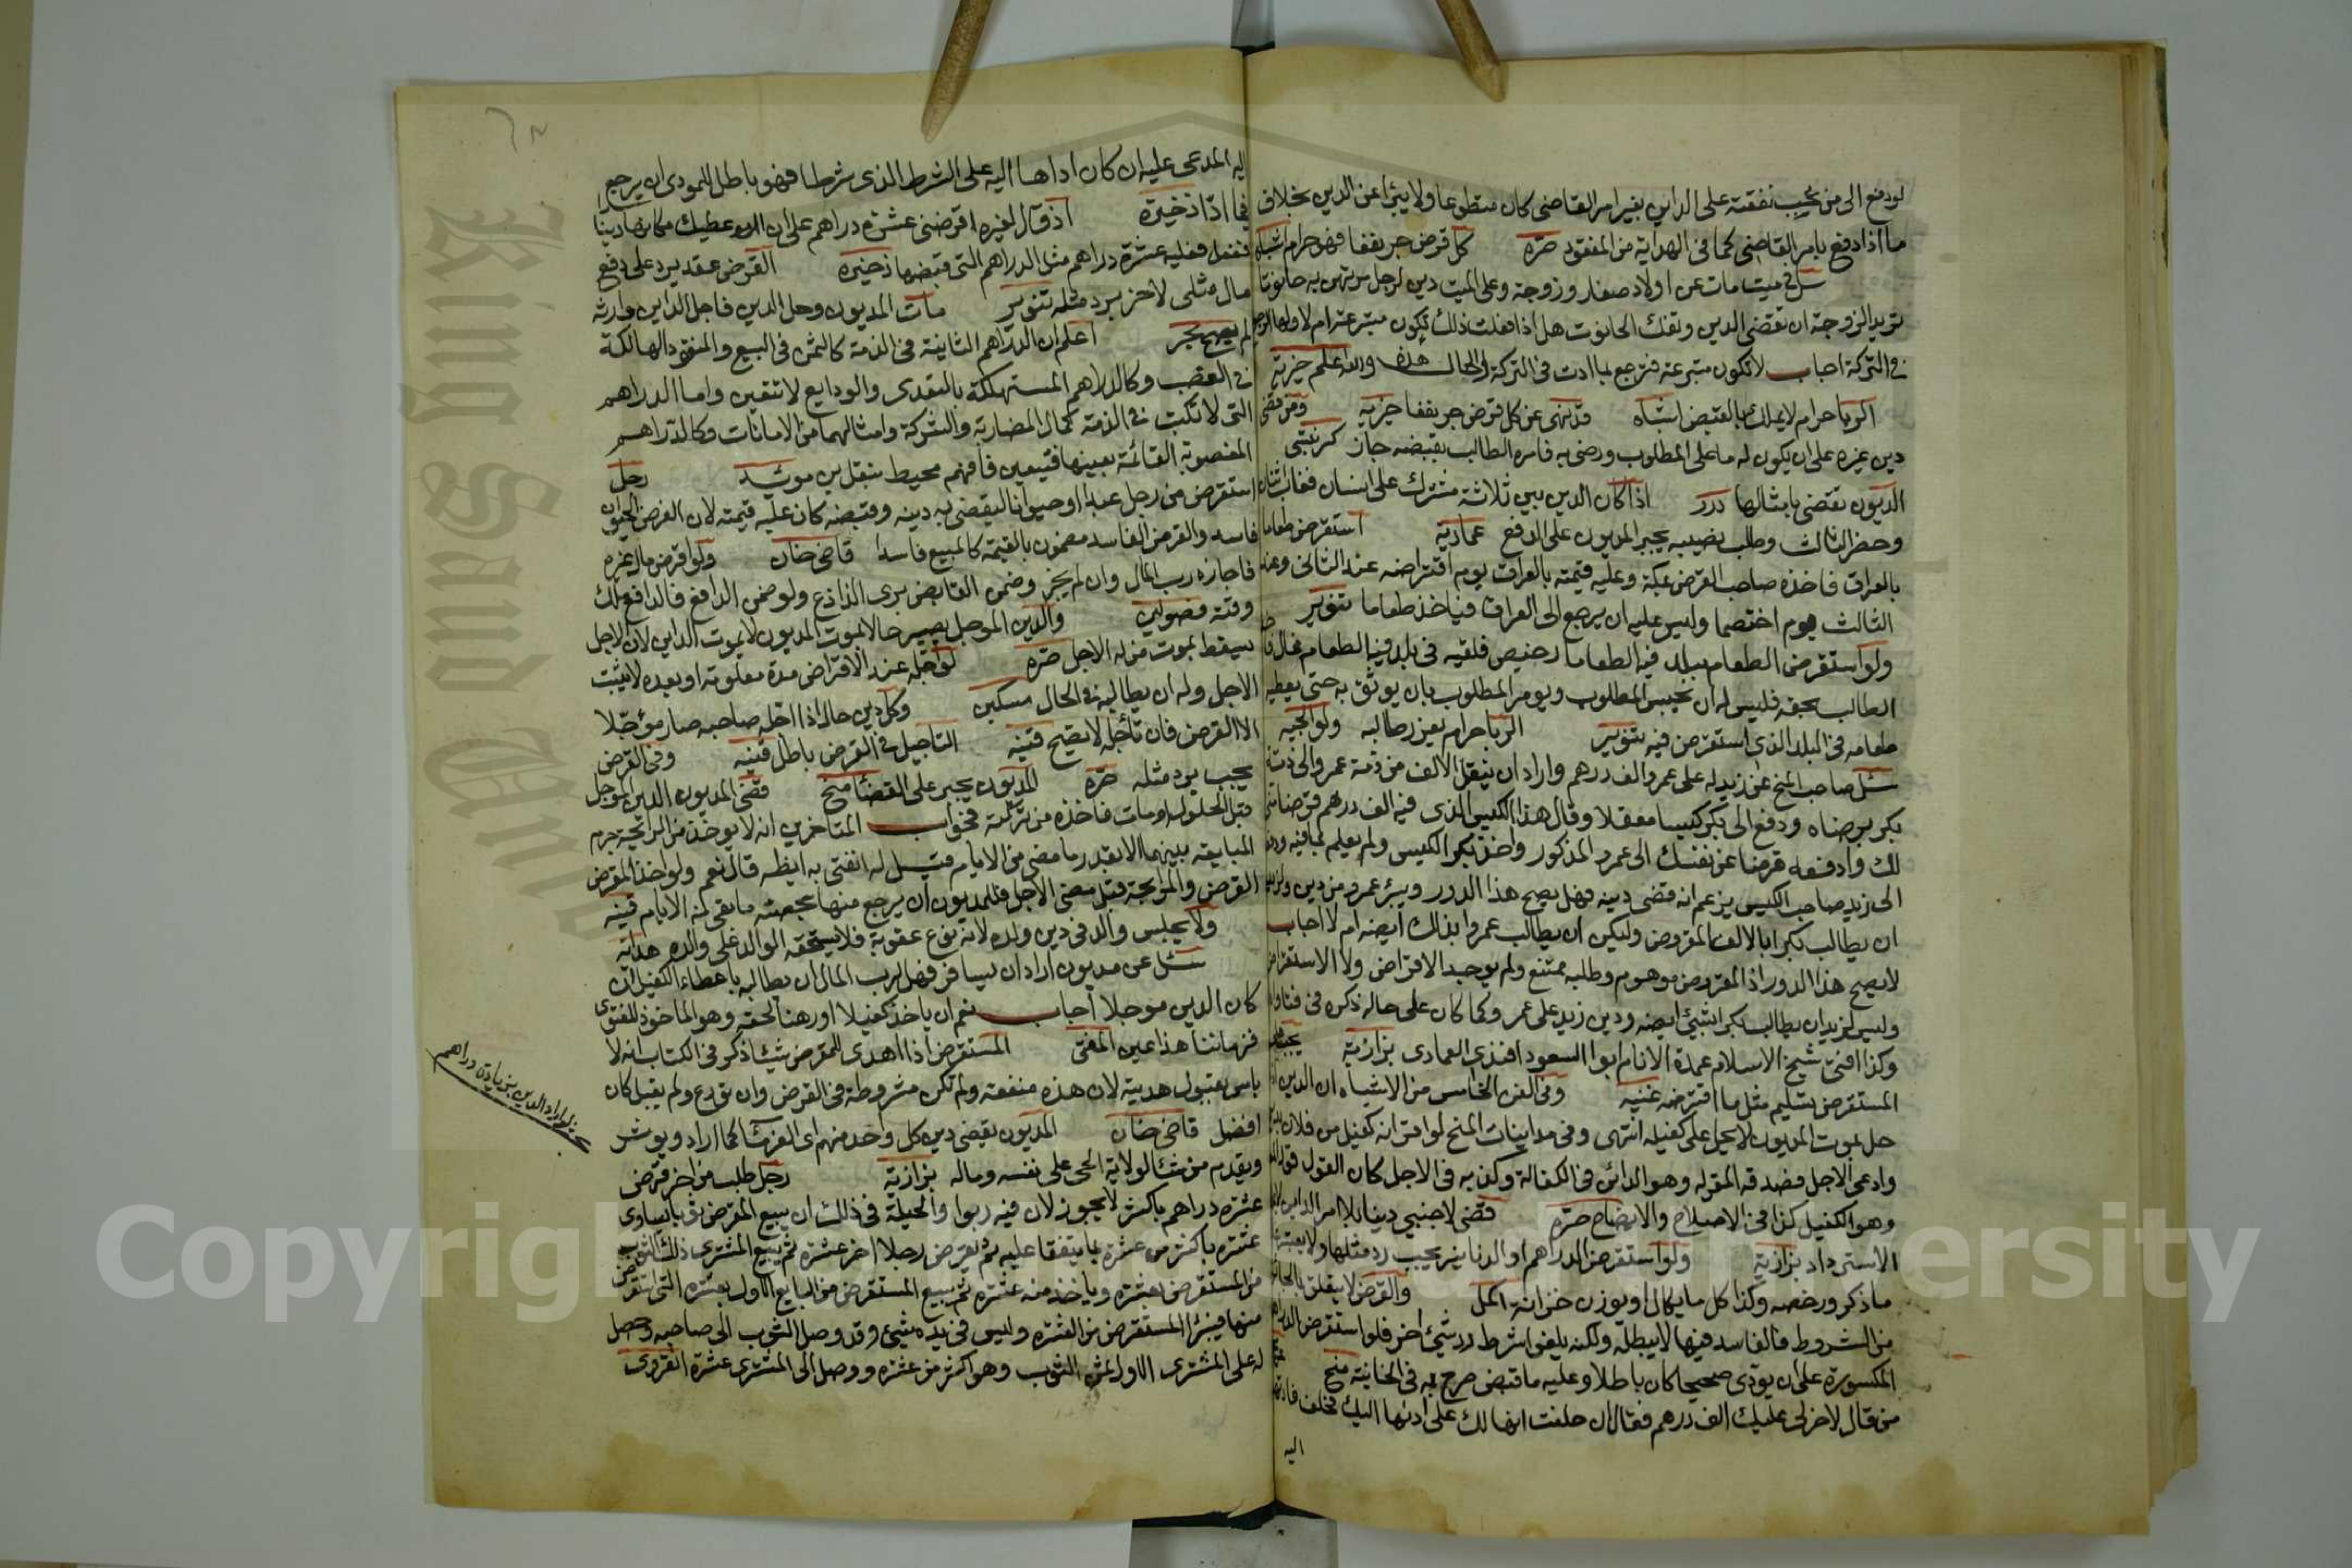 لو دفع الى من تجب نفقته على الداين بغير امر القاضى كان متطوعا ولا يبرأ عن الدين بخلاف
ما اذا دفع بامر القاضى كما فى الهداية من المفقود صره كل قرض جر نفعا فهو حرام اشباه
سئل فى ميت مات عن اولاد صغار وزوجة وعلى الميت دين لرجل مرتهن به حانوتا
تريد الزوجة ان تقضى الدين وتفك الحانوت هل اذا فعلت ذلك تكون متبرعة ام لا ولها الرجوع
فى التركة اجاب لا تكون متبرعة فترجع بما ادت فى التركة والحال هذه والله اعلم خيرية
الربا حرام لا يملك بالقبض اشباه قد نهى عن كل قرض جر نفعا خيريه ومن قضى
دين غيره على ان يكون له ما على المطلوب ورضى به فامره الطالب بقبضه جاز
الديون تقضى بامثالها درر اذا كان الدين بين ثلاثة مشترك على انسان فغاب اثنان
وحضر الثالث وطلب نصيبه يجبر المديون على الدفع عمادية استقرض طعاما
بالعراق فاخذه صاحب القرض بمكة وعليه قيمته بالعراق يوم اقتراضه عند الثانى وعند
الثالث يوم اختصما وليس عليه ان يرجع الى العراق فياخذ طعاما تنوير
ولو استقرض الطعام ببلد فيه الطعام رخيص فلقيه فى بلد فيه الطعام غال
الطالب بحقه فليس له ان يحبس المطلوب ويومر المطلوب بان يوثق به حتى يعطيه
طعامه فى البلد الذى استقرض فيه تنوير الربا حرام ولوالجيه
سئل صاحب المنح عن زيد له على عمرو الف درهم واراد ان ينقل الالف من ذمة عمرو الى ذمة
بكر برضاه ودفع الى بكر كيسا مقفلا وقال هذا الكيس الذى فيه الف درهم قرضا منى
لك وادفعه قرضا عن نفسك الى عمرو المذكور واخذ بكر الكيس ولم يعلم بما فيه
الى زيد صاحب الكيس يزعم انه قضى دينه فهل يصح هذا الدور ويبرئ عمرو من دين
ان يطالب بكرا بالالف المقروض وليكن ان يطالب عمروا بذلك ايضه ام لا اجاب
لا يصح هذا الدور اذ المقروض موهوم وطلبه ممتنع ولم يوجد الاقراض ولا الاستقراض
وليس لزيد ان يطالب بكرا بشيئ ايضه ودين زيد على عمر وكما كان على حاله ذكره فى فتاواه
وكذا افتى شيخ الاسلام عمدة الانام ابوا السعود افندى العمادى بزازية
المستقرض تسليم مثل ما اقترضه غنيه وفى الفن الخامس من الاشباه ان الدين اذا
حل بموت المديون لا يحل على كفيله انتهى وفى مداينات المنح لو اقر انه كفيل من فلان
وادعى الاجل فصدقه المقر له وهو الدائن فى الكفالة وكذبه فى الاجل كان القول
وهو الكفيل كذا فى الاصلاح والايضاح صره قضى لاجنبى دينا بلا امر الداين
الاسترداد بزازية ولو استقرض الدراهم او الدنانير يجب رد مثلها ولا يعتبر
ما ذكر ورخصه وكذا كل ما يكال او يوزن خزانة اكمل والقرض لا يتعلق بالجائز
من الشروط فالفاسد فيها لا يبطله ولكنه يلغى اشرط رد شيئ اخر فلو استقرض الدراهم
المكسورة على ان يؤدى صحيحا كان باطلا وعليه ما قبض صرح به فى الخانية منح
من قال لاخر لى عليك الف درهم فقال ان حلفت انها لك على اديتها اليك فحلف فاداها
اليه
اليه المدعى عليه ان كان اداها اليه على الشرط الذى شرطا فهو باطل للمودى ان يرجع
فيما ادّا ذخيرة اذ قال لغيره اقرضنى عشرة دراهم على ان اعطيك مكانها دينا
ففعل فعليه عشرة دراهم مثل الدراهم التى قبضها ذخيره القرض عقد يرد على دفع
مال مثلى لاخر ليرد مثله تنوير مات المديون وحل الدين فاجل الداين وارثه
لم يصح بحر اعلم ان الدراهم الثابتة فى الذمة كالثمن فى البيع والمنقود الهالكة
فى الغصب وكالدراهم المستهلكة بالتعدى والودايع لا تتعين واما الدراهم
التى لا تثبت فى الذمة كمال المضاربة والشركة وامثالهما من الامانات وكالدراهم
المغصوبة القائمة بعينها فتتعين فافهم محيط رجل
استقرض من رجل عبدا او حيوانا ليقضى به دينه وقبضه كان عليه قيمته لان القرض الحيوان
فاسد والقرض الفاسد مضمون بالقيمة كالمبيع فاسدا قاضى خان ولو اقرض مال غيره
فاجازه رب المال وان لم يجز وضمن القابض برى الدافع ولو ضمن الدافع فالدافع ملك
وقته فصولين والدين الموجل يصير حالا بموت المديون لا بموت الداين لان الاجل
يسقط بموت من له الاجل صره لو اجله عند الاقراض مدة معلومة او بعده لا يثبت
الاجل وله ان يطالبه فى الحال مسكين وكل دين حال اذا اجله صاحبه صار مؤجلا
الا القرض فان تأجله لا يصح قنيه التاجيل فى القرض باطل قنيه وفى القرض
يجب يرد مثله صره المديون يجبر على القضا منح قضى المديون الدين الموجل
قبل الحلول او مات فاخذه من تركته فجواب المتاخرين انه لا يوخذ من المرابحة جرم
المبايعة بينهما الا بقدر ما مضى من الايام قيل له انفتى به ايظه قال نعم ولو اخذ المقرض
القرض والمرابحة قبل مضى الاجل فللمديون ان يرجع منها بحصته ما بقى له من الايام قنيه
ولا يحبس والد فى دين ولده لانه نوع عقوبة فلا يستحقه الوالد على والده هدايه
سئل عن مديون اراد ان يسافر فهل لرب المال ان يطالبه باعطاء الكفيل ان
كان الدين موجلا اجاب نعم ان ياخذ كفيلا او رهنا لحقه وهو الماخوذ للفتوى
فزماننا هذا عين المفتى المستقرض اذا اهدى للمقرض شيئا ذكر فى الكتاب انه لا
باس بقبول هديته لان هذه منفعته ولم تكن مشروطة فى القرض وان تورع ولم يقبل كان
افضل قاضى خان المديون يقضى دين كل واحد منهم اى الغرمثا كما اراد ويوثر
ويقدم من شا لولاية الحى على نفسه وماله بزازية رجل طلب من اخر قرض
عشره دراهم باكثر لا يجوز لان فيه ربوا والحيلة فى ذلك ان يبيع المقرض ثوبا يساوى
عشره باكثر من عشرة بما يتفقا عليه ثم يقرض رجلا اخر عشرة ثم يبيع المشترى ذلك الثوب
من المستقرض بعشره وياخذ منه عشره ثم يبيع المستقرض من البايع الاول بعشره التى استقرض
منها فيبرأ المستقرض من العشره وليس فى يده شيئ وقد وصل الثوب الى صاحبه وحصل
له على المشترى الاول ثمن الثوب وهو اكثر من عشره ووصل الى المشترى عشرة انقروى
لو اراد الدين بزيادة دراهم
King Saud University
Copyright © King Saud University